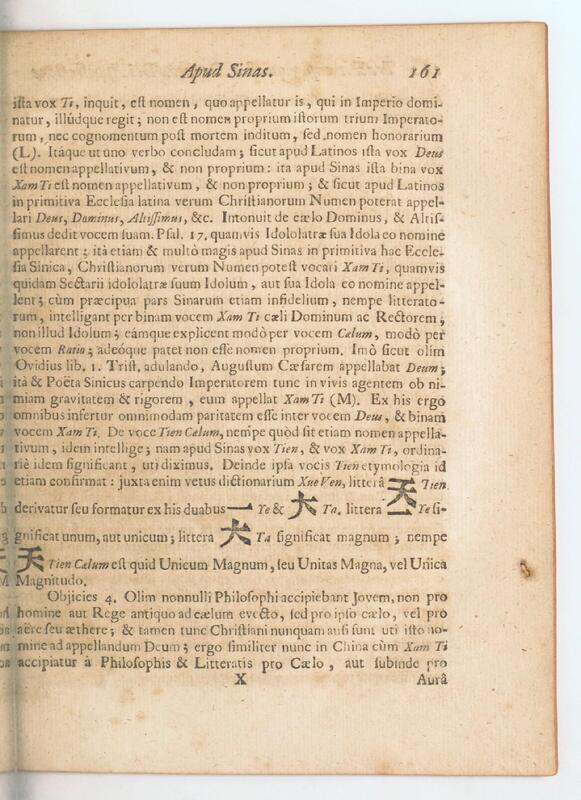 Apud Sinas. 161
iſta vox Ti, inquit, eſt nomen, quo appellatur is, qui in Imperio domi-
natur, illúdque regit; non eſt nomen proprium iſtorum trium Imperato-
rum, nec cognomentum poſt mortem inditum, ſed nomen honorarium
(L). Itáque ut uno verbo concludam; ſicut apud Latinos iſta vox Deus
eſt nomen appellativum, & non proprium: ita apud Sinas iſta bina vox
Xam Ti eſt nomen appellativum, & non proprium; & ſicut apud Latinos
in primitiva Eccleſia latina verum Chriſtianorum Numen poterat appel-
lari Deus, Dominus, Altiſſimus, &c. Intonuit de cælo Dominus, & Altiſ-
ſimus dedit vocem ſuam. Pſal. 17. quamvis Idololatræ ſua Idola eo nomine
appellarent; itá etiam & multò magis apud Sinas in primitiva hac Eccle-
ſia Sinica, Chriſtianorum verum Numen poteſt vocari Xam Ti, quamvis
quidam Sectarii idololatræ ſuum Idolum, aut ſua Idola eo nomine appel-
lent; cùm præcipua pars Sinarum etiam infidelium, nempe litterato-
rum, intelligant per binam vocem Xam Ti cæli Dominum ac Rectorem,
non illud Idolum; eámque explicent modò per vocem Cælum, modò per
vocem Ratio; adeóque patet non eſſe nomen proprium. Imò ſicut olim
Ovidius lib. 1. Triſt. adulando, Auguſtum Cæſarem appellabat Deum;
itá & Poëta Sinicus carpendo Imperatorem tunc in vivis agentem ob ni-
miam gravitatem & rigorem, eum appellat Xam Ti (M). Ex his ergo
omnibus infertur ommimodam paritatem eſſe inter vocem Deus, & binam
vocem Xam Ti. De voce Tien Cælum, nempe quòd ſit etiam nomen appella-
tivum, idem intellige; nam apud Sinas vox Tien, & vox Xam Ti, ordina-
riè idem ſignificant, uti diximus. Deinde ipſa vocis Tien etymologia id
etiam confirmat: juxta enim vetus dictionarium Xue Ven, litterâ 天 Tien
derivatur ſeu formatur ex his duabus 一 Ye & 大 Ta. littera 一 Ye ſi-
gnificat unum, aut unicum; littera 大 Ta ſignificat magnum; nempe
天 Tien Cælum eſt quid Unicum Magnum, ſeu Unitas Magna, vel Unica
Magnitudo.
Objicies 4. Olim nonnulli Philoſophi accipiebant Jovem, non pro
homine aut Rege antiquo ad cælum evecto, ſed pro ipſo cælo, vel pro
aëre ſeu æthere; & tamen tunc Chriſtiani nunquam auſi ſunt uti iſto no-
mine ad appellandum Deum; ergo ſimiliter nunc in China cùm Xam Ti
accipiatur à Philoſophis & Litteratis pro Cælo, aut ſubinde pro
X Aurâ